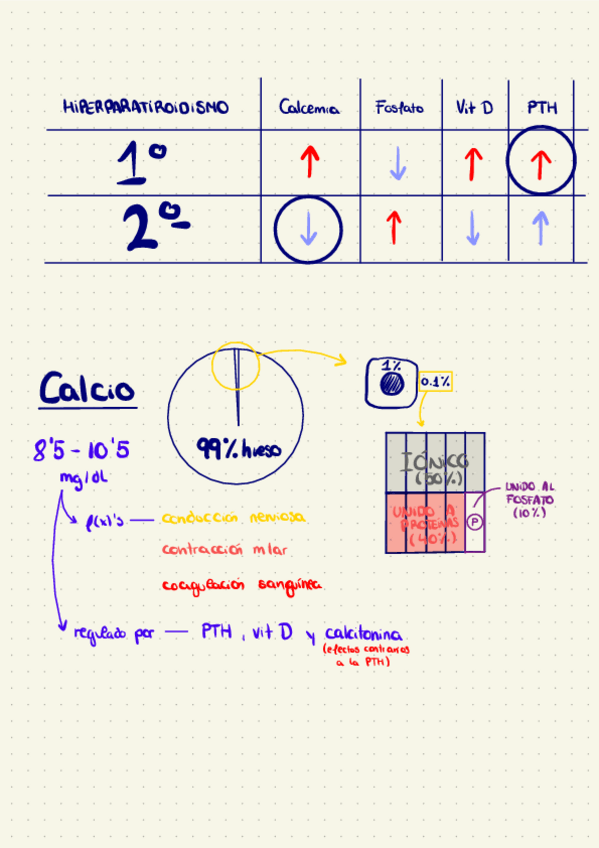 HiPERPARATiROiDiSMO Calcemia Fosfato Vit D PTH
1º ↑ ↓ ↑ ↑
2º ↓ ↑ ↓ ↑
Calcio
8'5 - 10'5
mg/dL
99% hueso
1%
0.1%
IÓNICO
(50%)
UNIDO A
PROTEÍNAS
(40%)
P
UNIDO AL
FOSFATO
(10%)
f(x)'s — conducción nerviosa
contracción mlar
coagulación sanguínea
regulado por — PTH, vit D y calcitonina
(efectos contrarios
a la PTH)